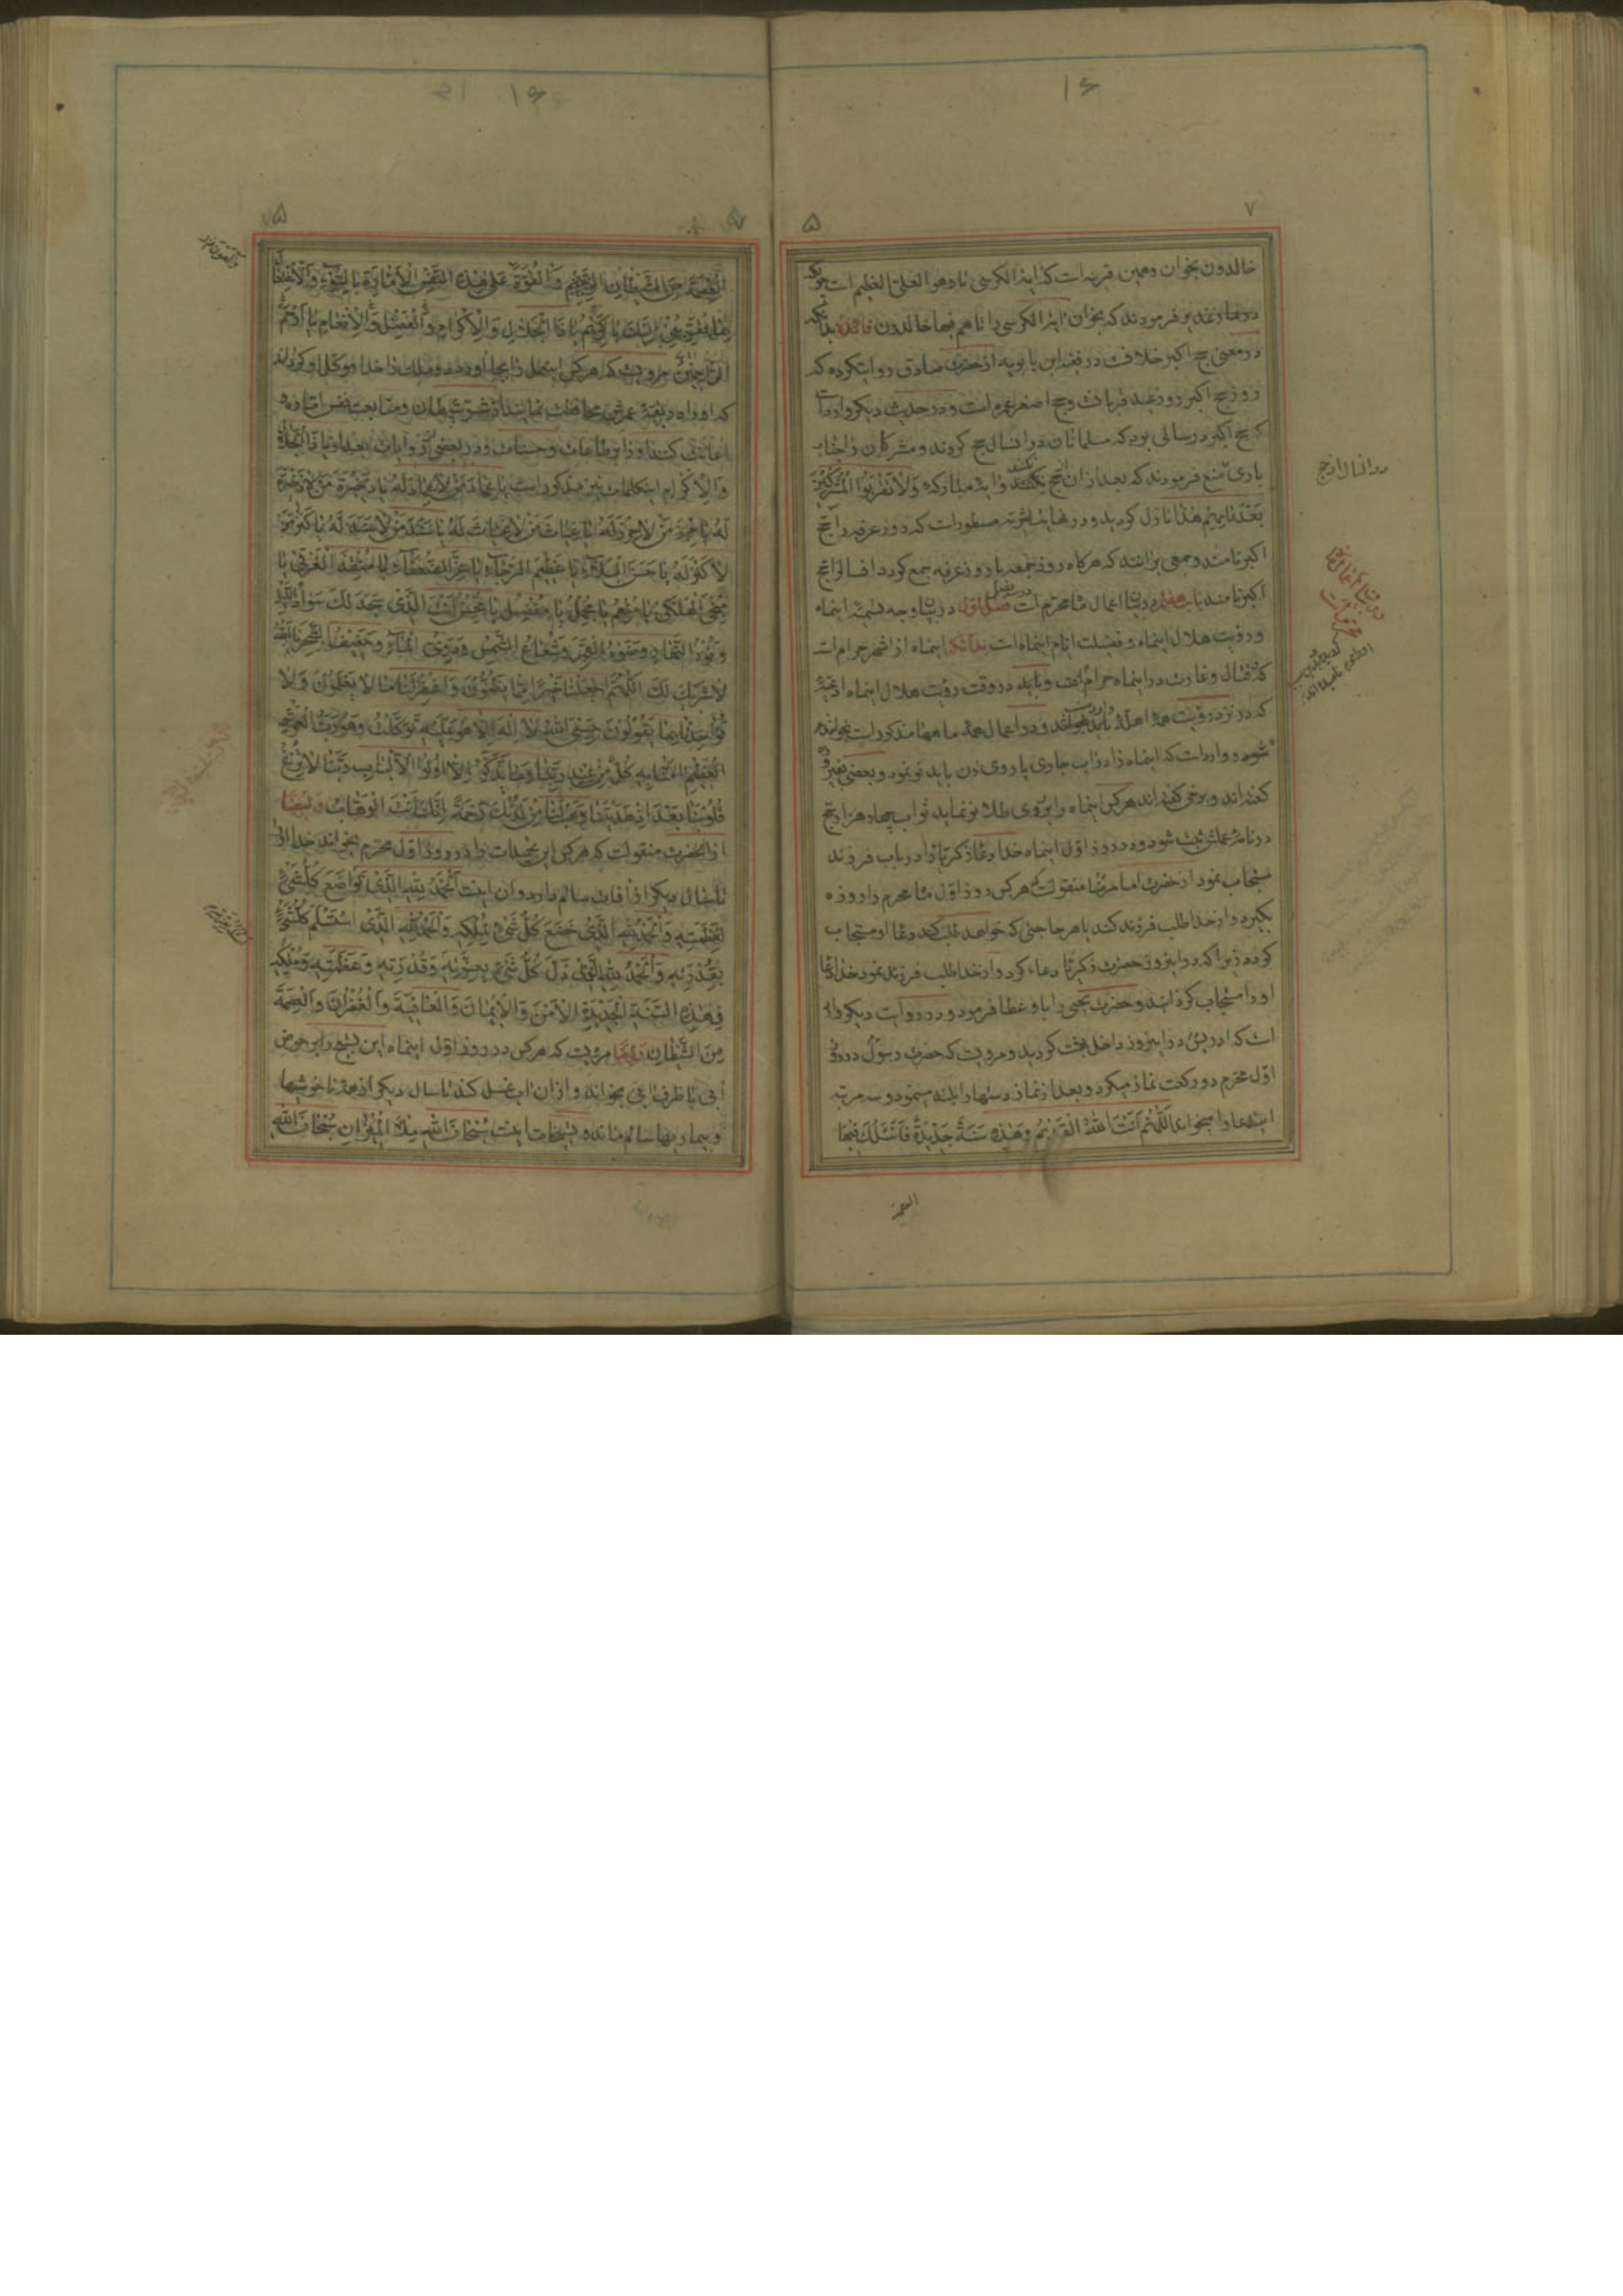 خالدون بخوان و همین قرینه است که ایة الکرسی تا و هو العلی العظیم است چونکه
در نماز غدیر فرمودند که بخوان ایة الکرسی را تا هم فیها خالدون فائده بدانکه
در معنی حج اکبر خلافست در فقه ابن بابویه از حضرت صادق روایتکرده که
روز حج اکبر روز عید قربانست و حج اصغر عمره است و در حدیث دیکر وارد است
که حج اکبر در سالی بود که مسلمانان در ان سال حج کردند و مشرکان را جناب
باری منع فرمودند که بعد از ان حج نکنند و ایة مبارکه وَلا تَقْرَبُوا الْمُشْرِکینَ
بَعْدَ عامِهِمْ هذا نازل کردید و در نهایه اثیریه مسطور است که روز عرفه را حج
اکبر نامند و جمعی برانند که هرکاه روز جمعه با روز عرفه جمع کردد انسال را حج
اکبر نامند باب هفتم در بیان اعمال ماه محرم است فصل اول در بیان وجه تسمیه اینماه
و رؤیت هلال اینماه و فضیلت ایام اینماه است بدانکه اینماه از اشهر حرام است
که قتال و غارت در اینماه حرام است و باید در وقت رؤیت هلال اینماه ادعیه
که در نزد رؤیت همه اهله باید بخوانند و در اعمال همه ماهها مذکور است بخوانند
شهید و وارد است که اینماه را در اب جاری یا روی زن باید نو نمود و بعضی بغیروزه
کفته اند و برخی کفته اند هرکس اینماه را بر روی طلا نو نماید ثواب چهار هزار حج
در نامه عملش ثبت شود و در روز اول اینماه خدا دعای ذکریا را در باب فرزند
مستجاب نمود از حضرت امام رضا منقولست که هرکس روز اول ماه محرم را روزه
بکیرد و از خدا طلب فرزند کند یا هر حاجتی که خواهد طلب کند دعای او مستجاب
کردد زیرا که در اینروز حضرت ذکریا دعاء کرد و از خدا طلب فرزند نمود خدا دعای
او را مستجاب کردانید و حضرت یحیی را باو عطا فرمود و در روایت دیکر وارد
است که ادریس در اینروز داخل بهشت کردید و مرویست که حضرت رسول در روز
اول محرم دو رکعت نماز میکرد و بعد از نماز دستها را بلند مینمود و سه مرتبه
این دعا را میخواند اَللّهُمَّ اَنْتَ اللّهُ الْقَدیمُ وَ هذِهِ سَنَةٌ جَدیدَةٌ فَاَسْئَلُکَ فیهَا
العصمة
در انسال از حج
الْعِصْمَةَ مِنَ الشَّیْطانِ الرَّجیمِ وَ الْقُوَّةَ عَلی هذِهِ النَّفْسِ الْاَمّارَةِ بِالسُّوءِ وَ الْاِشْتِغالَ
بِما یُقَرِّبُنی اِلَیْکَ یا کَریمُ یا ذَا الْجَلالِ وَ الْاِکْرامِ وَ الْفَضْلِ وَ الْاِنْعامِ یا اَرْحَمَ
الرّاحِمینَ مرویست که هرکس اینعمل را بجا آورد دو ملک را خدا موکل او کرداند
که او را در بقیه عمرش محافظت نمایند از شر شیطان و متابعت نفس اماره و
اعانت کنند او را بر طاعات و حسنات و در بعضی از روایات بعد از یا ذَا الْجَلالِ
وَ الْاِکْرام اینکلمات نیز مذکور است یا عِمادَ مَنْ لا عِمادَ لَهُ یا ذَخیرَةَ مَنْ لا ذَخیرَةَ
لَهُ یا حِرْزَ مَنْ لا حِرْزَ لَهُ یا غِیاثَ مَنْ لا غِیاثَ لَهُ یا سَنَدَ مَنْ لا سَنَدَ لَهُ یا کَنْزَ مَنْ
لا کَنْزَ لَهُ یا حَسَنَ الْبَلاءِ یا عَظیمَ الرَّجاءِ یا عِزَّ الضُّعَفاءِ یا مُنْقِذَ الْغَرْقی یا
مُنْجِیَ الْهَلْکی یا مُنْعِمُ یا مُجْمِلُ یا مُفْضِلُ یا مُحْسِنُ اَنْتَ الَّذی سَجَدَ لَکَ سَوادُ اللَّیْلِ
وَ نُورُ النَّهارِ وَ ضَوْءُ الْقَمَرِ وَ شُعاعُ الشَّمْسِ وَ دَوِیُّ الْماءِ وَ حَفیفُ الشَّجَرِ یا اَللّهُ
لا شَریکَ لَکَ اَللّهُمَّ اجْعَلْنا خَیْراً مِمّا یَظُنُّونَ وَ اغْفِرْ لَنا ما لا یَعْلَمُونَ وَ لا
تُؤاخِذْنا بِما یَقُولُونَ حَسْبِیَ اللّهُ لا اِلهَ اِلّا هُوَ عَلَیْهِ تَوَکَّلْتُ وَ هُوَ رَبُّ الْعَرْشِ
الْعَظیمِ امَنّا بِهِ کُلٌّ مِنْ عِنْدِ رَبِّنا وَ ما یَذَّکَّرُ اِلّا اُولُوا الْاَلْبابِ رَبَّنا لا تُزِغْ
قُلُوبَنا بَعْدَ اِذْ هَدَیْتَنا وَ هَبْ لَنا مِنْ لَدُنْکَ رَحْمَةً اِنَّکَ اَنْتَ الْوَهّابُ و ایضا
از انحضرت منقولست که هرکس این تحمیدات را در روز اول محرم بخواند خدا او را
تا سال دیکر از افات سالم دارد و ان اینست اَلْحَمْدُ لِلّهِ الَّذی تَواضَعَ کُلُّ شَیْءٍ
لِعَظَمَتِهِ وَ الْحَمْدُ لِلّهِ الَّذی خَضَعَ کُلُّ شَیْءٍ لِمُلْکِهِ وَ الْحَمْدُ لِلّهِ الَّذی اسْتَسْلَمَ کُلُّ شَیْءٍ
بِقُدْرَتِهِ وَ الْحَمْدُ لِلّهِ الَّذی ذَلَّ کُلُّ شَیْءٍ بِعِزَّتِهِ وَ قُدْرَتِهِ وَ عَظَمَتِهِ وَ مُلْکِهِ
فی هذِهِ السَّنَةِ الْجَدیدَةِ الْاَمْنَ وَ الْایمانَ وَ الْعافِیَةَ وَ الْغُفْرانَ وَ الْعِصْمَةَ
مِنَ الشَّیْطانِ و ایضا مرویست که هرکس در روز اول اینماه این تسبیح را بر حوض
ابی یا ظرف ابی بخواند و از ان اب غسل کند تا سال دیکر از همه ناخوشیها
و بیماریها سالم مانده تسبیحات اینست سُبْحانَ اللّهِ مِلْاَ الْمیزانِ سُبْحانَ اللّهِ